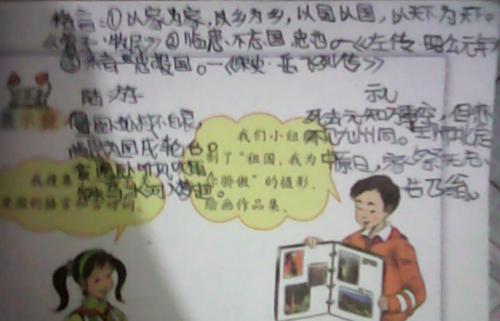 格言：①以家为家，以乡为乡，以国以国，以天下为天下。
《管子·牧民》②临患不忘国，忠也。—《左传·昭公元年》
报国。—《宋史·岳飞列传》
陆游
示儿
僵卧孤村不自哀，
尚思为国戍轮台。
夜阑卧听风吹雨，
铁马冰河入梦
死去元知万事空，但
不见九州同。王师北定
中原日，家祭无忘
告乃翁。
我们小组
制了“祖国，我为
你骄傲”的摄影、
绘画作品集。
我搜集
爱国的格言